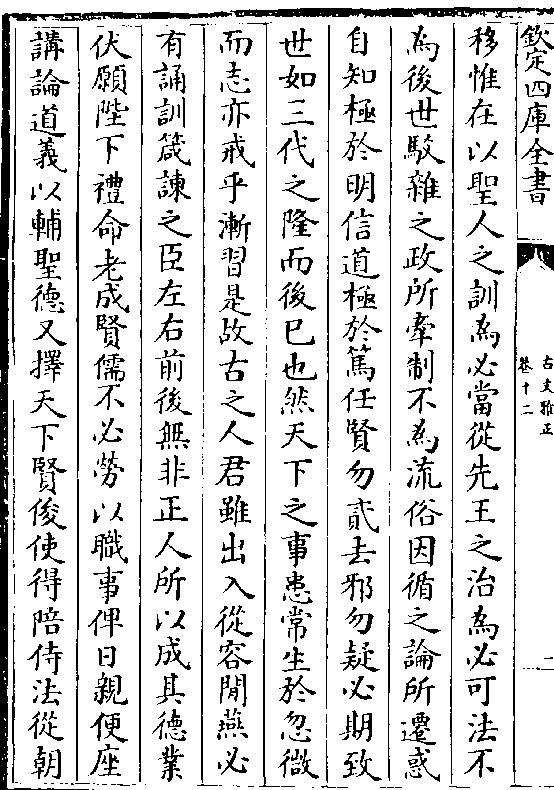 欽定四庫全書
古文雅正
卷十二
移惟在以聖人之訓為必當從先王之治為必可法不
為後世駁雜之政所牽制不為流俗因循之論所遷惑
自知極於明信道極於篤任賢勿貳去邪勿疑必期致
世如三代之隆而後已也然天下之事患常生於忽微
而志亦戒乎漸習是故古之人君雖出入從容閒燕必
有誦訓箴諫之臣左右前後無非正人所以成其德業
伏願陛下禮命老成賢儒不必勞以職事俾日親便座
講論道義以輔聖德又擇天下賢俊使得陪侍法從朝